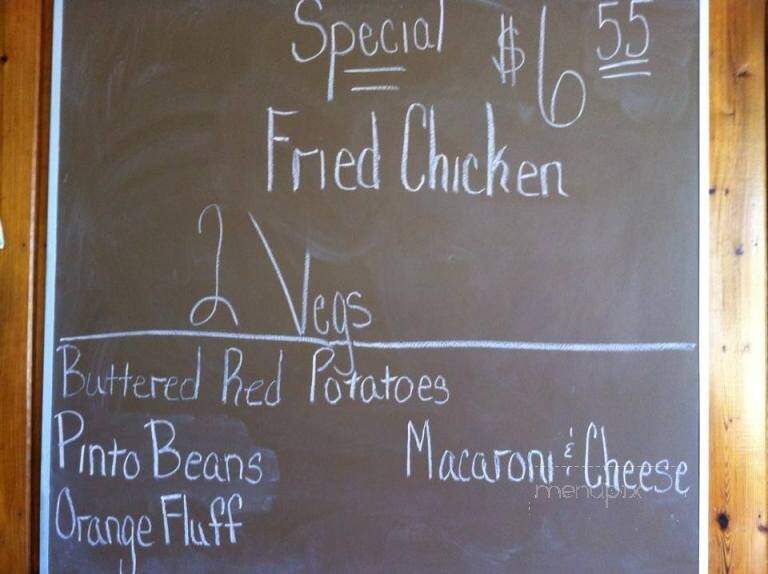 Special $6 55
Fried Chicken
2 Vegs
Buttered Red Potatoes
Pinto Beans
Macaroni & Cheese
menupix
Orange Fluff